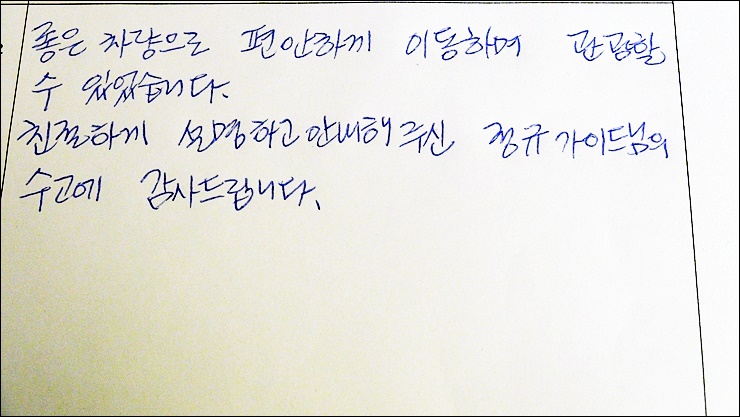 좋은 차량으로 편안하게 이동하며 관광할
수 있었습니다.
친절하게 설명하고 안내해 주신 정규 가이드님의
수고에 감사드립니다.